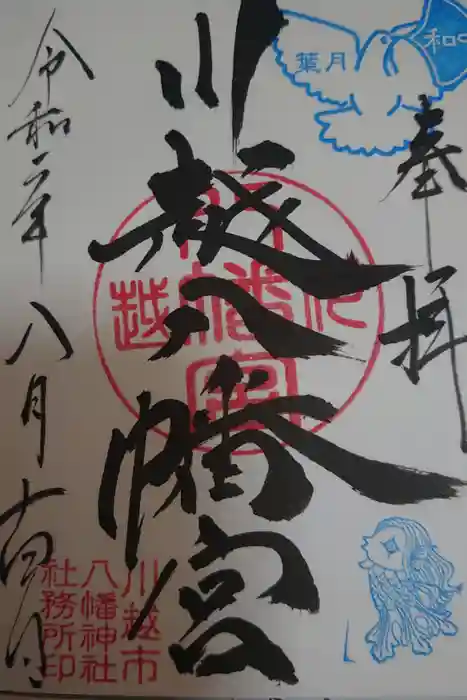 奉拝
川越八幡宮
令和二年八月十四日
葉月
和
川越市
八幡神社
社務所印